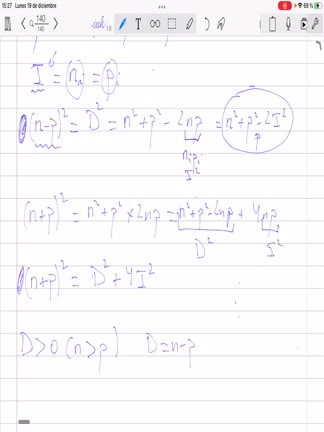 15:27 Lunes 19 de diciembre
69 %
140
140
I = n_i = p_i
(n-p)² = D² = n²+p² - 2np = n²+p²-2I²
n_i p_i
I²
(n+p)² = n²+p²+2np = n²+p²-2np + 4np
D² I²
(n+p)² = D² + 4I²
D>0 (n>p) D=n-p